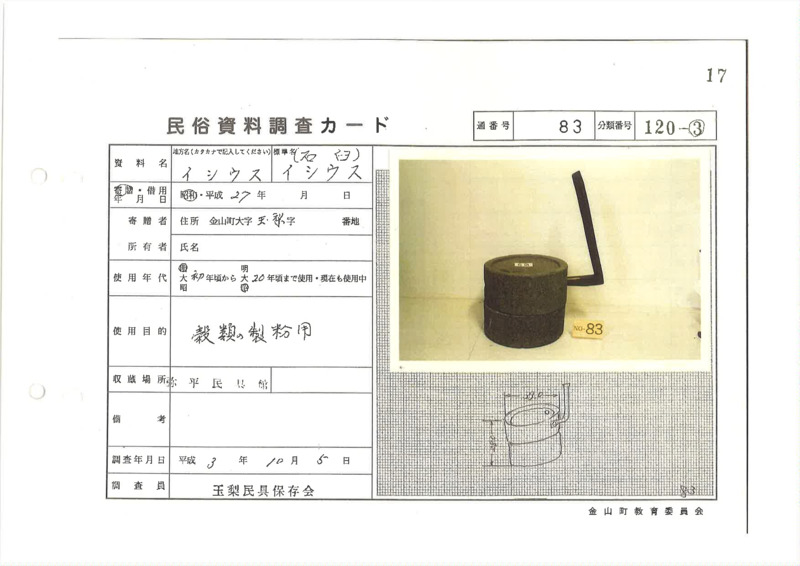 17
民俗資料調査カード
通番号 83 分類番号 120-③
資料名 地方名(カタカナで記入してください) イシウス 標準名 (石臼) イシウス
寄贈・借用年月日 昭和・平成 27年 月 日
寄贈者 住所 金山町大字玉梨字 番地
所有者 氏名
使用年代 明大昭 初年頃から 明大昭 20年頃まで使用・現在も使用中
使用目的 穀類の製粉用
収蔵場所 弥平民具館
備考
調査年月日 平成 3年 10月 5日
調査員 玉梨民具保存会
No 83
83
金山町教育委員会